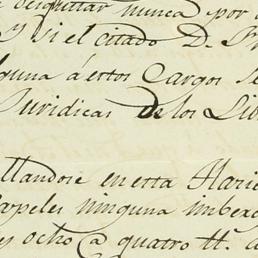 desquitar nunca por
Y si el citado D. Fr
lguna á estos Cargos se
Juridicas de los Lib
llandose en esta Harie
apeles ninguna imbex
es ocho @ quatro tt. a